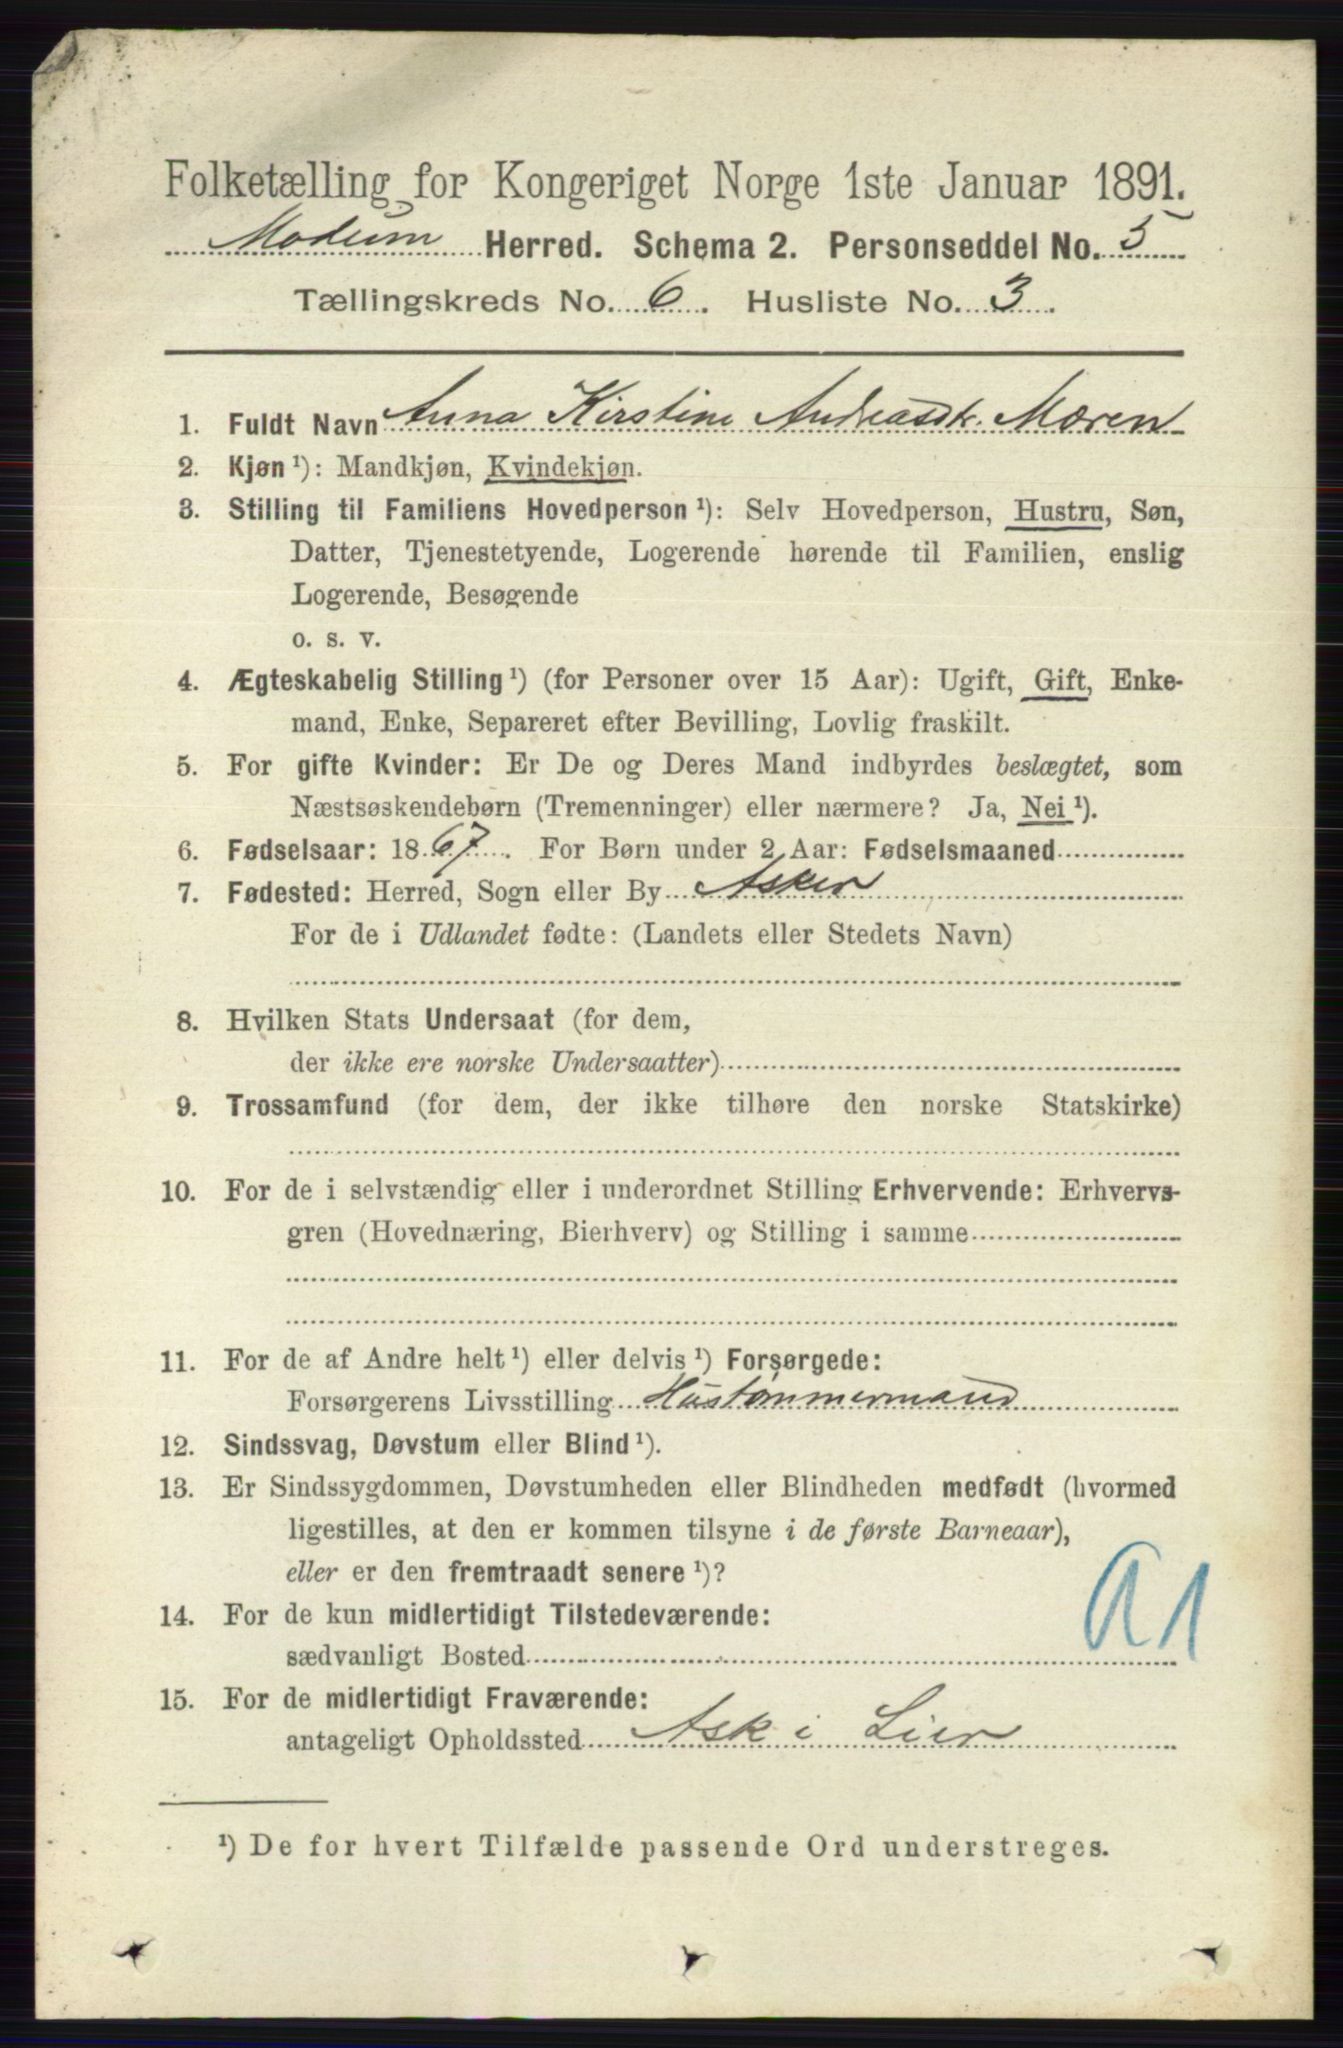 Folketælling for Kongeriget Norge 1ste Januar 1891.
Modum Herred. Schema 2. Personseddel No. 5
Tællingskreds No. 6. Husliste No. 3.
1. Fuldt Navn Anna Kirstine Andreasdtr. Moren
2. Kjøn ¹): Mandkjøn, Kvindekjøn.
3. Stilling til Familiens Hovedperson ¹): Selv Hovedperson, Hustru, Søn,
Datter, Tjenestetyende, Logerende hørende til Familien, enslig
Logerende, Besøgende
o. s. v.
4. Ægteskabelig Stilling ¹) (for Personer over 15 Aar): Ugift, Gift, Enke-
mand, Enke, Separeret efter Bevilling, Lovlig fraskilt.
5. For gifte Kvinder: Er De og Deres Mand indbyrdes beslægtet, som
Næstsøskendebørn (Tremenninger) eller nærmere? Ja, Nei ¹).
6. Fødselsaar: 1867. For Børn under 2 Aar: Fødselsmaaned
7. Fødested: Herred, Sogn eller By Asker
For de i Udlandet fødte: (Landets eller Stedets Navn)
8. Hvilken Stats Undersaat (for dem,
der ikke ere norske Undersaatter)
9. Trossamfund (for dem, der ikke tilhøre den norske Statskirke)
10. For de i selvstændig eller i underordnet Stilling Erhvervende: Erhvervs-
gren (Hovednæring, Bierhverv) og Stilling i samme
11. For de af Andre helt ¹) eller delvis ¹) Forsørgede:
Forsørgerens Livsstilling Hustømmermand
12. Sindssvag, Døvstum eller Blind ¹).
13. Er Sindssygdommen, Døvstumheden eller Blindheden medfødt (hvormed
ligestilles, at den er kommen tilsyne i de første Barneaar),
eller er den fremtraadt senere ¹)?
14. For de kun midlertidigt Tilstedeværende:
sædvanligt Bosted
a1
15. For de midlertidigt Fraværende:
antageligt Opholdssted Ask i Lier
¹) De for hvert Tilfælde passende Ord understreges.